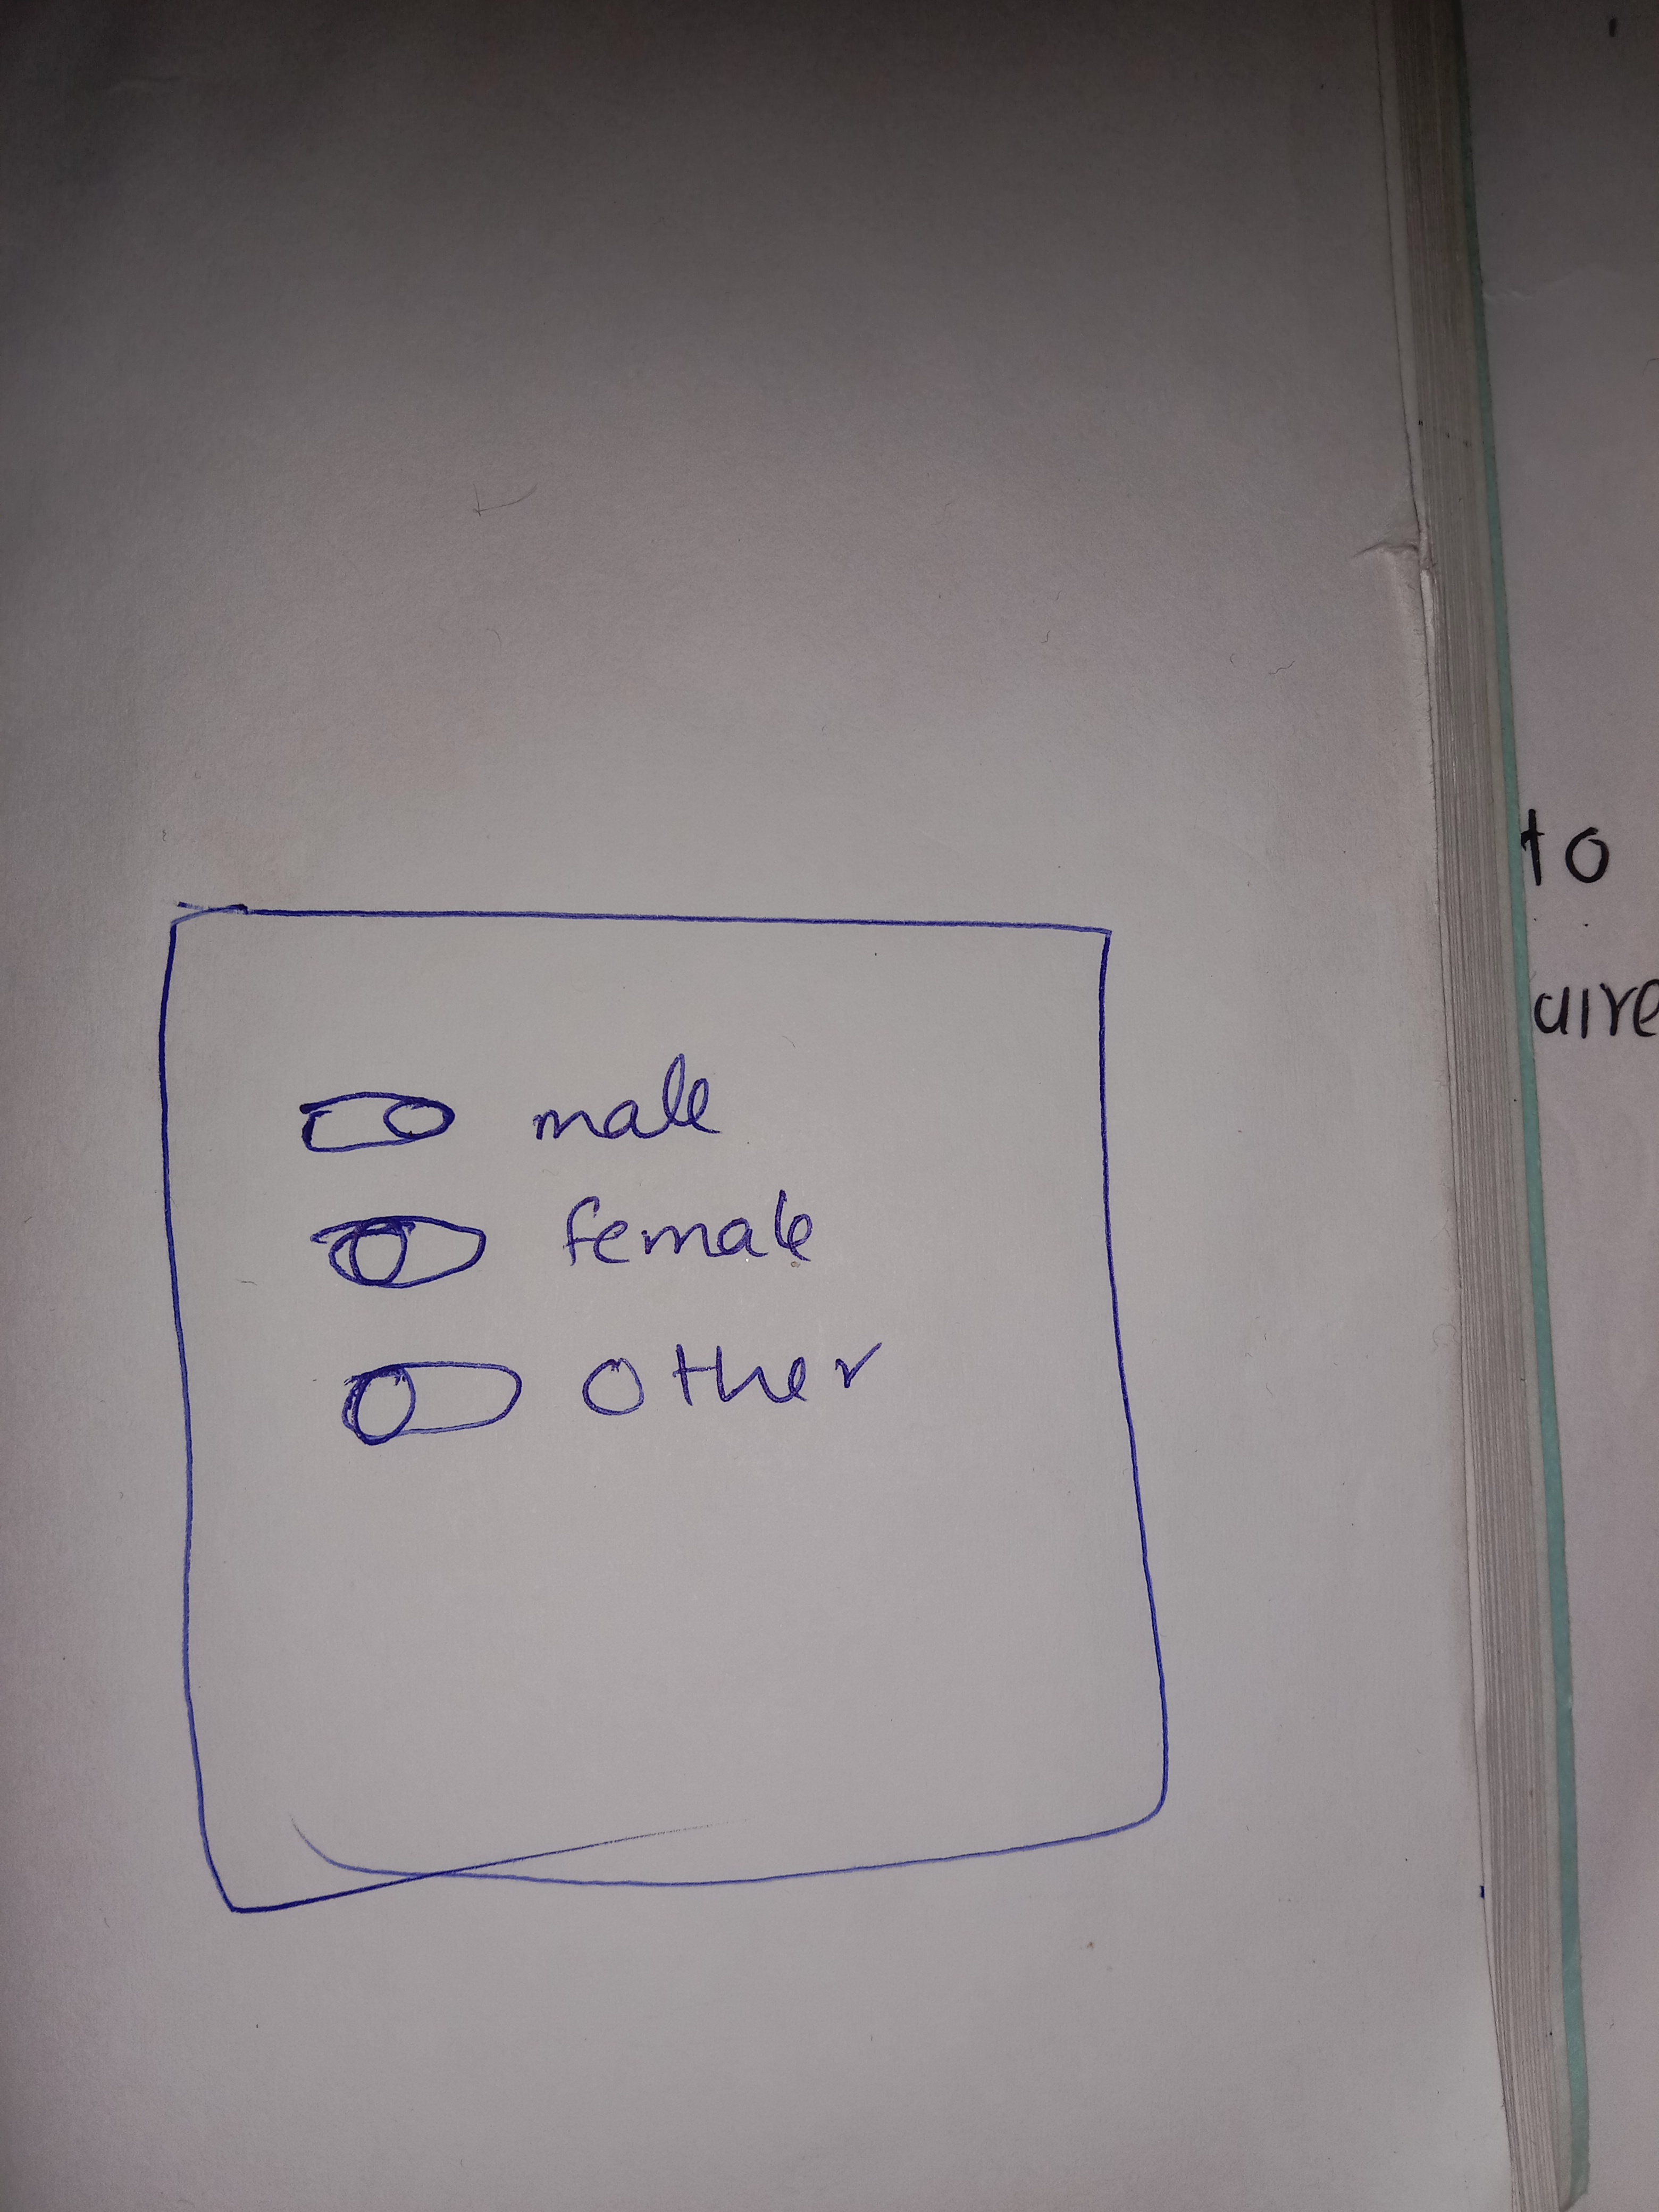 male
female
other
to